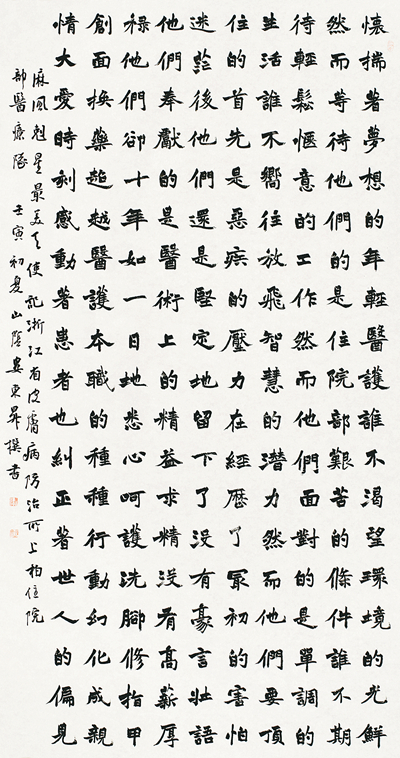 懷揣著夢想的年輕醫護誰不渴望環境的光鮮
然而等待他們的是住院部艱苦的條件誰不期
待輕鬆愜意的工作然而他們面對的是單調的
生活誰不嚮往放飛智慧的潛力然而他們要頂
住的首先是惡疾的壓力在經歷了冣初的害怕
迷茫後他們還是堅定地留下了沒有豪言壯語
他們奉獻的是醫術上的精益求精沒有高薪厚
祿他們卻十年如一日地悉心呵護洗腳修指甲
創面換藥超越醫護本職的種種行動幻化成親
情大愛時刻感動著患者也糾正著世人的偏見
麻風剋星最美天使記浙江省皮膚病防治所上柏住院
部醫療隊壬寅初夏山陰婁東昇撰書